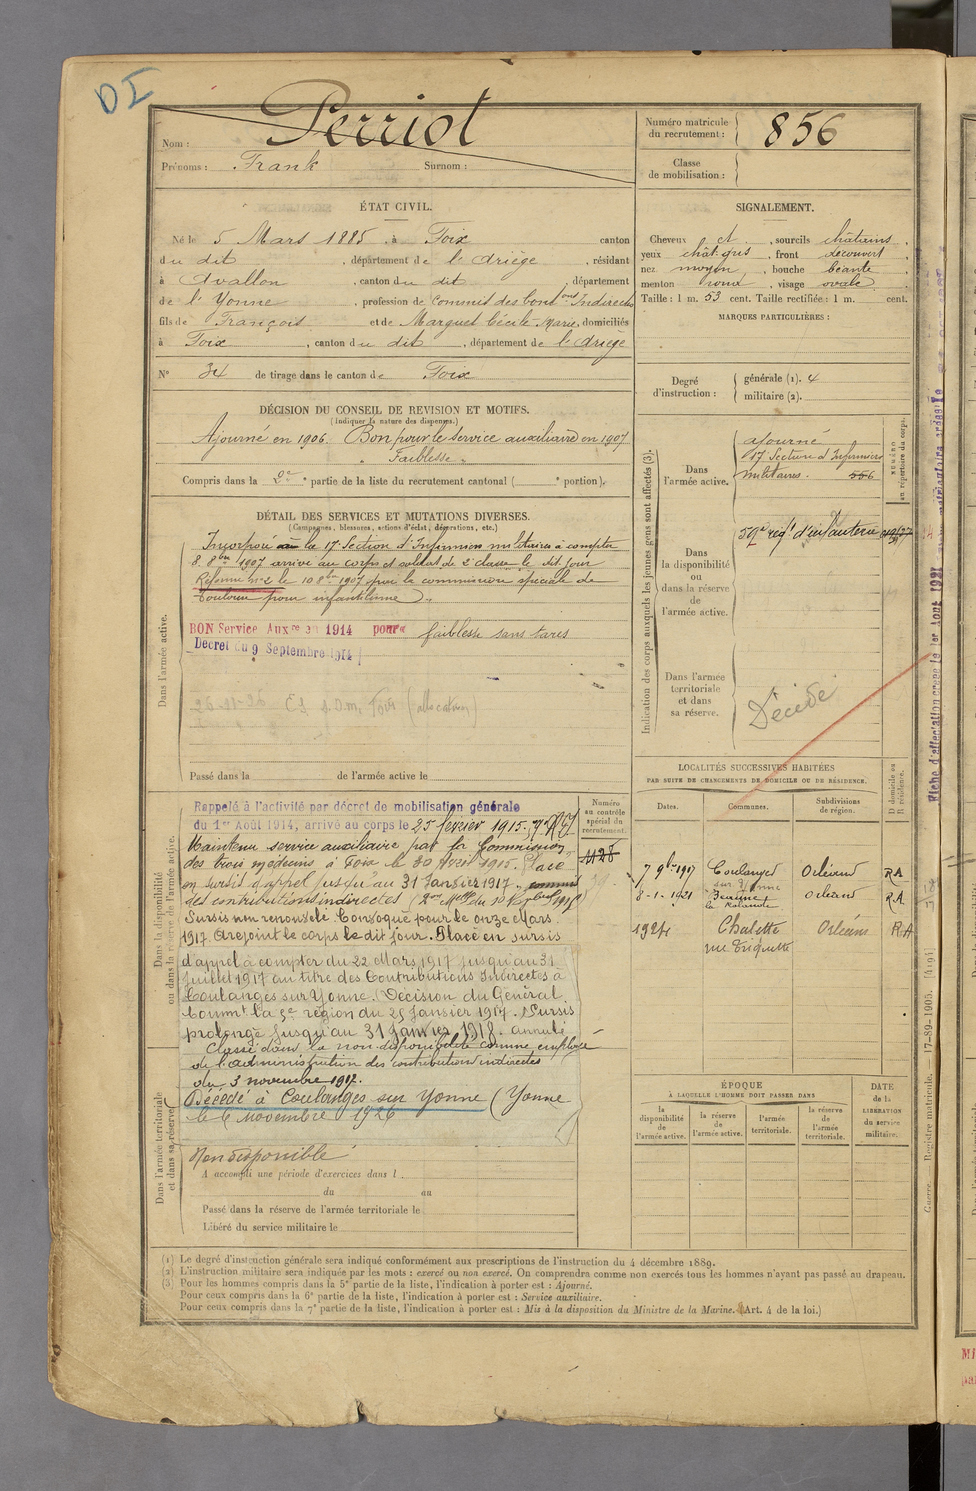 DI
Nom : Perriot
Prénoms : Frank Surnom :
Numéro matricule du recrutement : 856
Classe de mobilisation :
ÉTAT CIVIL.
Né le 5 Mars 1885, à Foix canton
du dit, département de l'Ariège, résidant
à Avallon, canton du dit, département
de l'Yonne, profession de Commis des Contons Indirectes
fils de François et de Marguet Cécile-Marie, domiciliés
à Foix, canton du dit, département de l'Ariège
N° 34 de tirage dans le canton de Foix
SIGNALEMENT.
Cheveux et, sourcils châtains,
yeux chât. gris, front découvert,
nez moyen, bouche béante,
menton rond, visage ovale.
Taille : 1 m. 53 cent. Taille rectifiée : 1 m. cent.
MARQUES PARTICULIÈRES :
Degré d'instruction : générale (1). 4
militaire (2).
DÉCISION DU CONSEIL DE REVISION ET MOTIFS.
(Indiquer la nature des dispenses.)
Ajourné en 1906. Bon pour le service auxiliaire en 1907
"Faiblesse"
Compris dans la 2e partie de la liste du recrutement cantonal ( e portion).
DÉTAIL DES SERVICES ET MUTATIONS DIVERSES.
(Campagnes, blessures, actions d'éclat, décorations, etc.)
Dans l'armée active.
Incorporé à la 17e Section d'Infirmiers militaires à compter
8 8bre 1907 arrivé au corps et soldat de 2e classe le dit jour
Réformé n° 2 le 10 8bre 1907 par la commission spéciale de
Toulouse pour infantilisme.
BON Service Auxre en 1914 pour faiblesse sans tares
Décret du 9 Septembre 1914
Foix (allocation)
Passé dans la de l'armée active le
Indication des corps auxquels les jeunes gens sont affectés (3).
NUMÉRO au répertoire du corps.
Dans l'armée active.
ajourné
17 Section d'Infirmiers
militaires. 556
Dans la disponibilité ou dans la réserve de l'armée active.
59e regt d'infanterie
Dans l'armée territoriale et dans sa réserve.
Décédé
Fiche d'affectation créée le 1er Aout 1921
Dans la disponibilité ou dans la réserve de l'armée active.
Numéro au contrôle spécial du recrutement.
1128
Rappelé à l'activité par décret de mobilisation générale
du 1er Août 1914, arrivé au corps le 25 février 1915.
Maintenu service auxiliaire par la Commission
des trois médecins à Foix le 30 Avril 1915. Placé
en sursis d'appel jusqu'au 31 Janvier 1917. commis
des contributions indirectes
Sursis non renouvelé. Convoqué pour le onze Mars
1917. A rejoint le corps le dit jour. Placé en sursis
d'appel à compter du 22 Mars 1917 jusqu'au 31
Juillet 1917 au titre des Contributions Indirectes à
Coulanges sur Yonne. (Décision du Général
Commt la 5e région du 25 Janvier 1917. Sursis
prolongé jusqu'au 31 janvier 1918. annulé
Classé dans la non-disponibilité comme employé
de l'administration des contributions indirectes
du 3 novembre 1917.
Décédé à Coulanges sur Yonne (Yonne
le 6 novembre 1926
Dans l'armée territoriale et dans sa réserve.
Non disponible
A accompli une période d'exercices dans l
du au
Passé dans la réserve de l'armée territoriale le
Libéré du service militaire le
LOCALITÉS SUCCESSIVES HABITÉES
PAR SUITE DE CHANGEMENTS DE DOMICILE OU DE RÉSIDENCE.
Dates. Communes. Subdivisions de région. D domicile ou R résidence.
7 9bre 1917 Coulanges sur Yonne Orléans RA
8-1-1921 Beaune la Rolande Orléans RA
1924 Chalette rue Triquette Orléans RA
ÉPOQUE
À LAQUELLE L'HOMME DOIT PASSER DANS
la disponibilité de l'armée active. la réserve de l'armée active. l'armée territoriale. la réserve de l'armée territoriale.
DATE de la LIBÉRATION du service militaire.
Guerre. Registre matricule. 17-89-1905.
(1) Le degré d'instruction générale sera indiqué conformément aux prescriptions de l'instruction du 4 décembre 1889.
(2) L'instruction militaire sera indiquée par les mots : exercé ou non exercé. On comprendra comme non exercés tous les hommes n'ayant pas passé au drapeau.
(3) Pour les hommes compris dans la 5e partie de la liste, l'indication à porter est : Ajourné.
Pour ceux compris dans la 6e partie de la liste, l'indication à porter est : Service auxiliaire.
Pour ceux compris dans la 7e partie de la liste, l'indication à porter est : Mis à la disposition du Ministre de la Marine. (Art. 4 de la loi.)